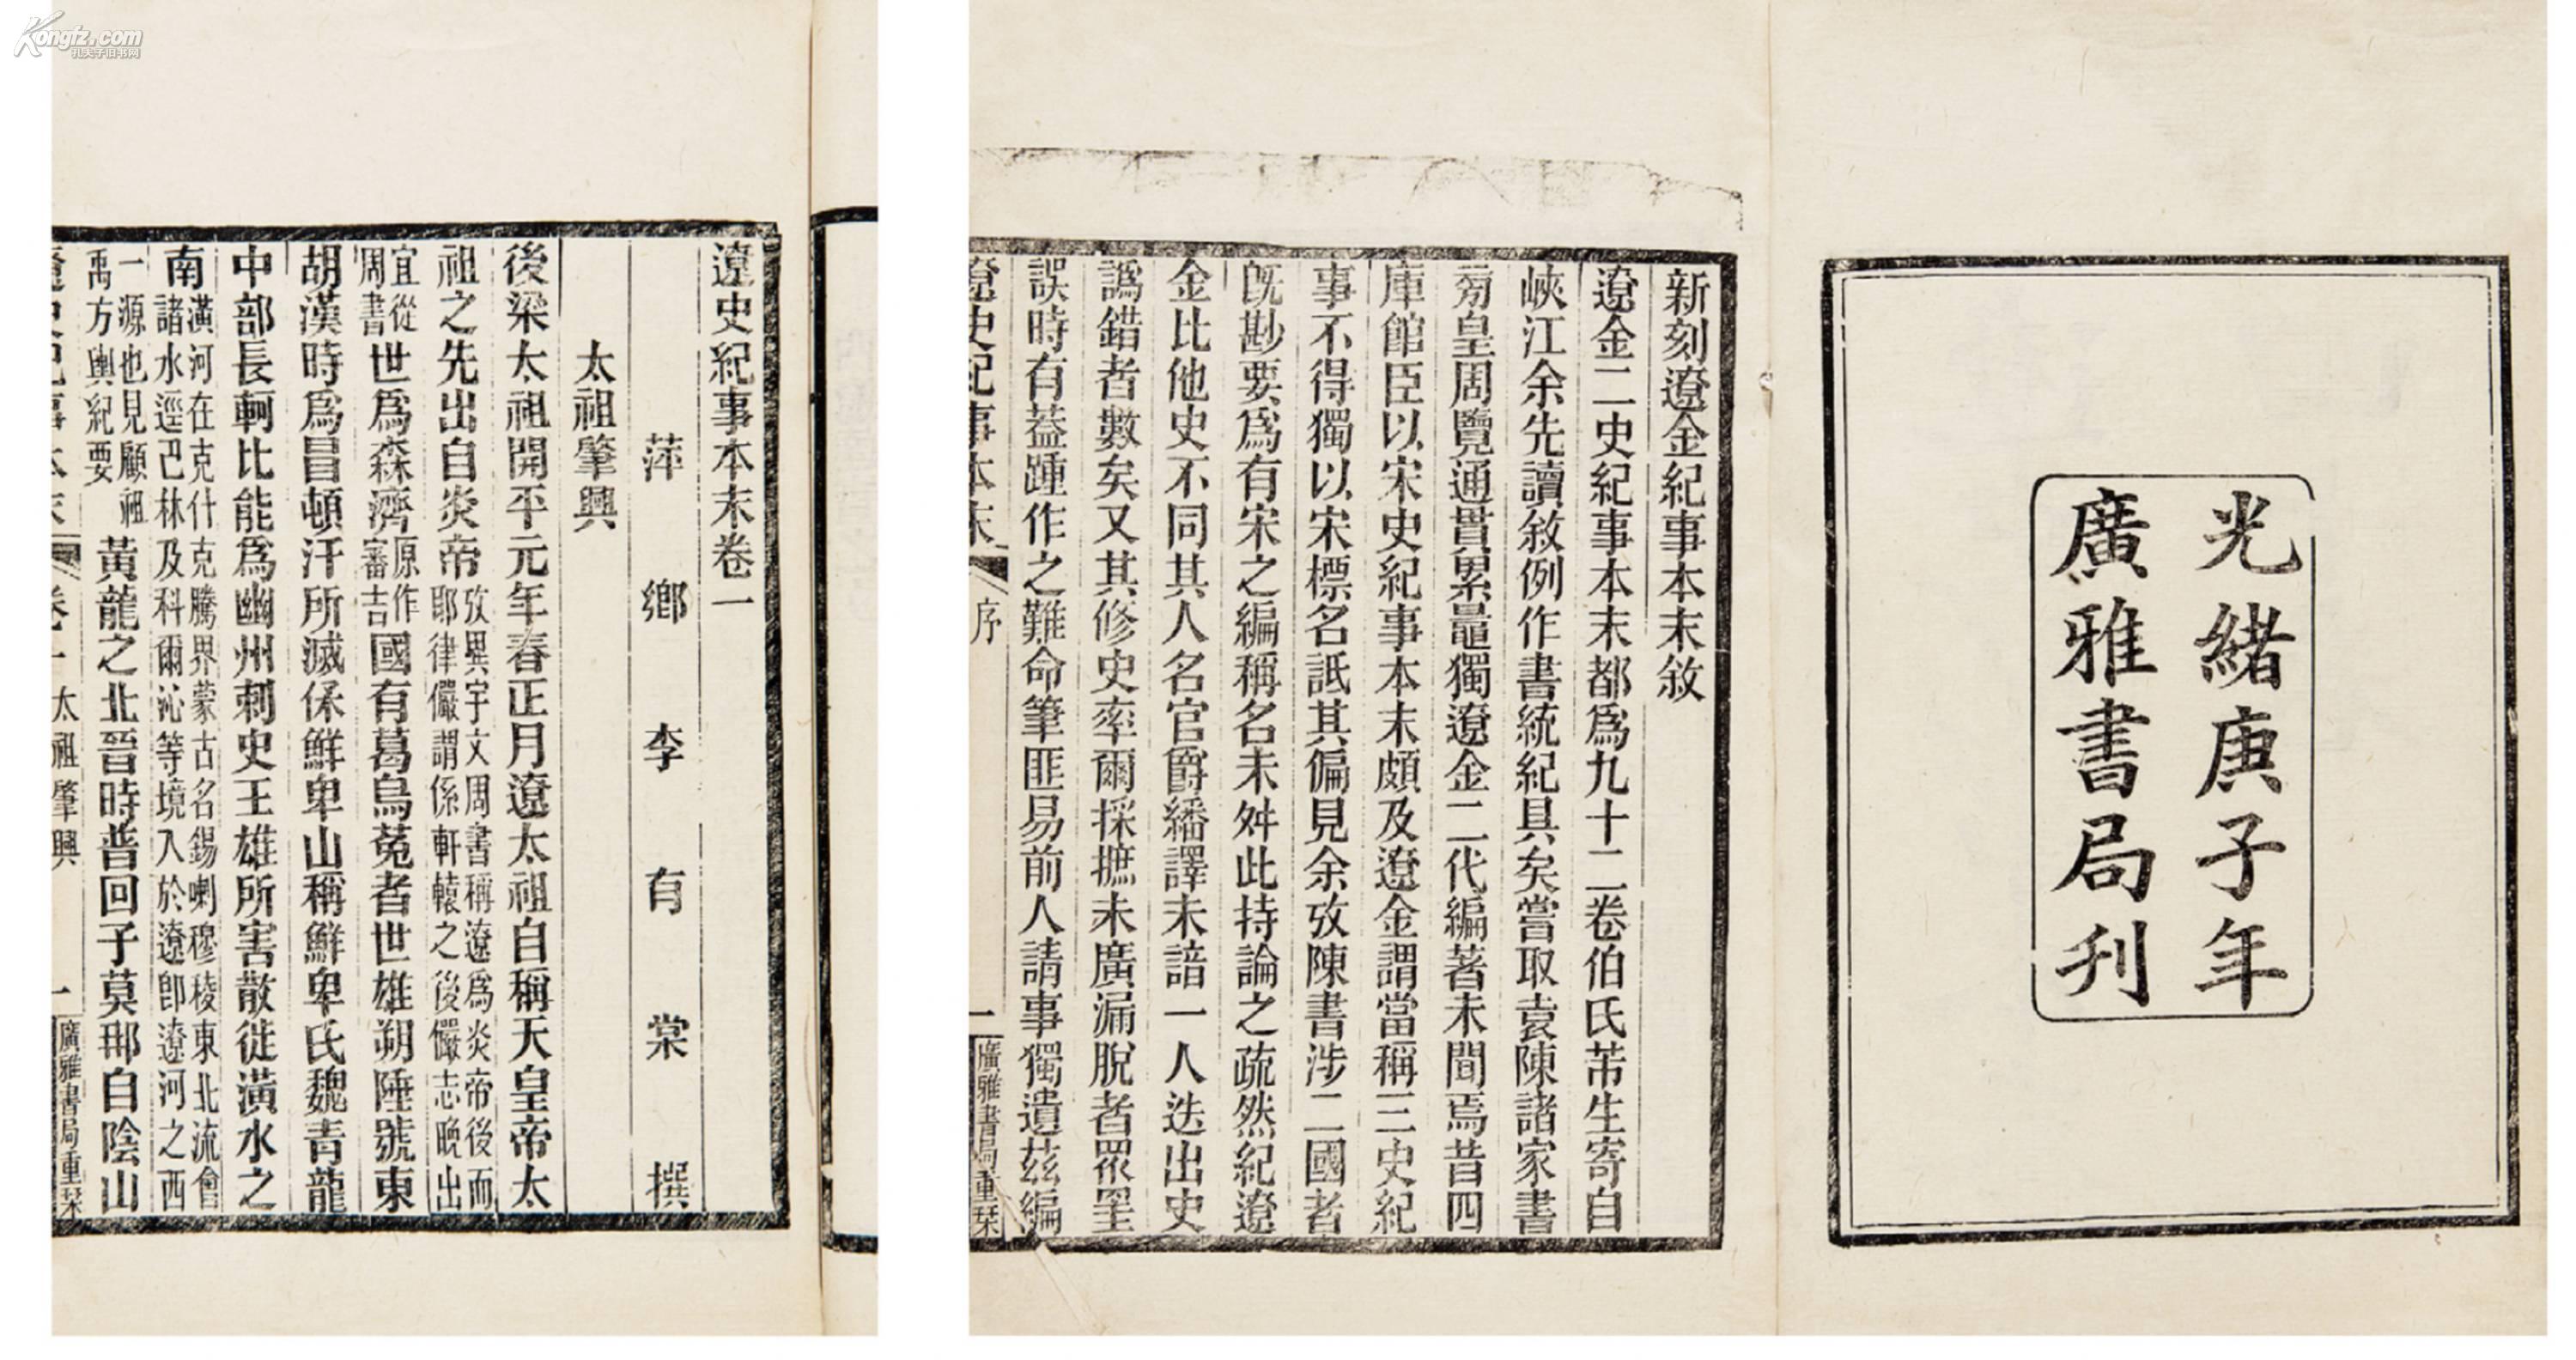 光緒庚子年
廣雅書局刊
新刻遼金紀事本末敘
遼金二史紀事本末都爲九十二卷伯氏芾生寄自
峽江余先讀敘例作書統紀具矣嘗取袁陳諸家書
旁皇周覽通貫累鼂獨遼金二代編著未聞焉昔四
庫館臣以宋史紀事本末頗及遼金謂當稱三史紀
事不得獨以宋標名詆其偏見余攷陳書涉二國者
既尠要爲有宋之編稱名未舛此持論之疏然紀遼
金比他史不同其人名官爵繙譯未諳一人迭出史
譌錯者數矣又其修史率爾採摭未廣漏脫者眾罣
誤時有蓋踵作之難命筆匪易前人請事獨遺茲編
遼史紀事本末 序 一 廣雅書局重栞
遼史紀事本末卷一
萍鄉李有棠撰
太祖肇興
後梁太祖開平元年春正月遼太祖自稱天皇帝太
祖之先出自炎帝攷異宇文周書稱遼爲炎帝後而耶律儼謂係軒轅之後儼志晚出
宜從周書世爲森濟原作審吉國有葛烏菟者世雄朔陲號東
胡漢時爲昌頓汗所滅保鮮卑山稱鮮卑氏魏青龍
中部長軻比能爲幽州刺史王雄所害散徙潢水之
南潢河在克什克騰界蒙古名錫喇穆稜東北流會諸水逕巴林及科爾沁等境入於遼卽遼河之西
一源也見顧祖禹方輿紀要黃龍之北晉時普回子莫那自陰山
遼史紀事本末 卷一 太祖肇興 一 廣雅書局重栞
Kongfz.com
孔夫子旧书网